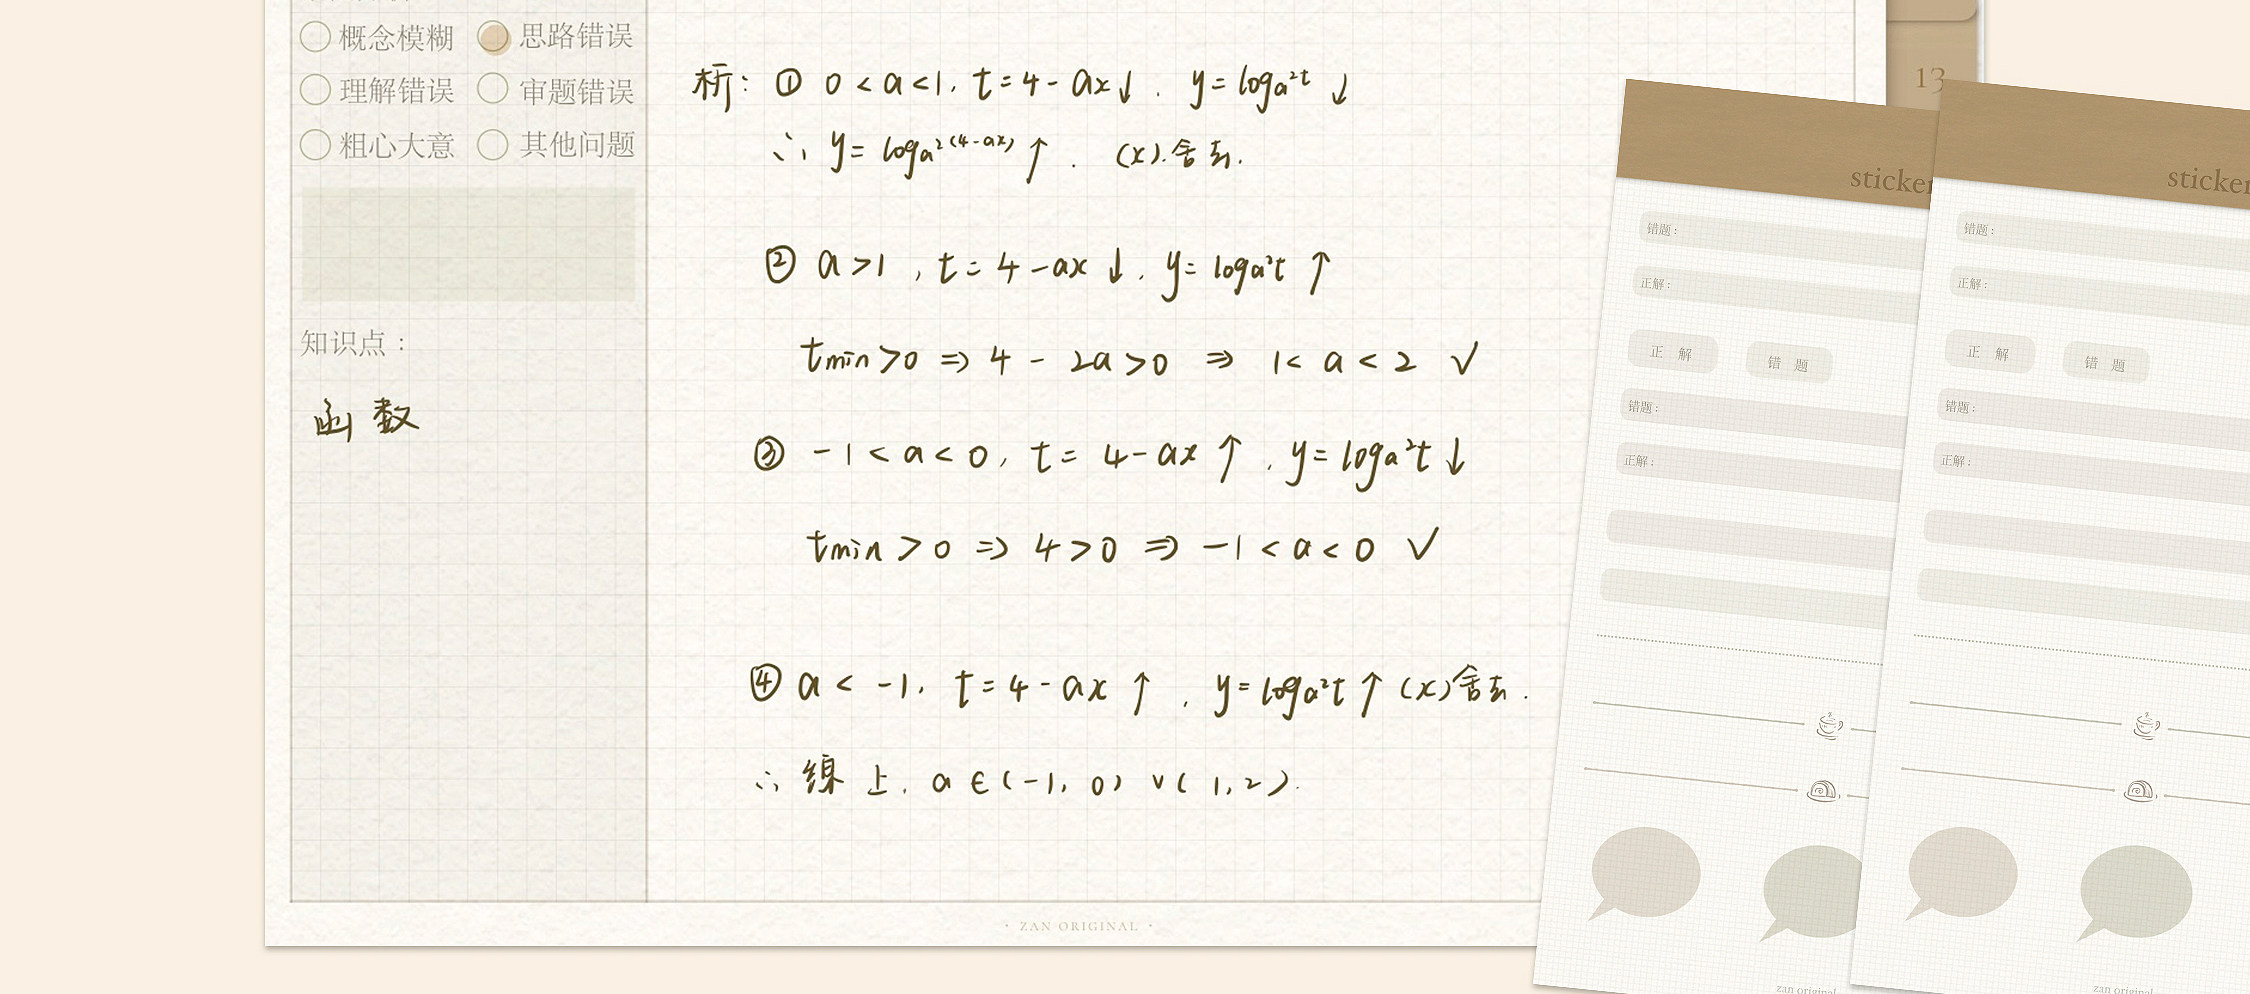 概念模糊 思路错误
理解错误 审题错误
粗心大意 其他问题
知识点：
函数
析：① 0<a<1, t=4-ax↓, y=logₐ²ᵗ ↓
∴, y=logₐ²⁽⁴⁻ᵃˣ⁾↑, (x).舍去.
② a>1, t=4-ax↓, y=logₐ²t ↑
tmin>0 ⇒ 4-2a>0 ⇒ 1<a<2 √
③ -1<a<0, t=4-ax↑, y=logₐ²t↓
tmin>0 ⇒ 4>0 ⇒ -1<a<0 √
④ a<-1, t=4-ax↑, y=logₐ²t↑(x)舍去.
∴ 综上, a∈(-1, 0)∨(1,2).
· ZAN ORIGINAL ·
13
sticker
错题：
正解：
正 解 错 题
错题：
正解：
zan original
sticker
错题：
正解：
正 解 错 题
错题：
正解：
zan original